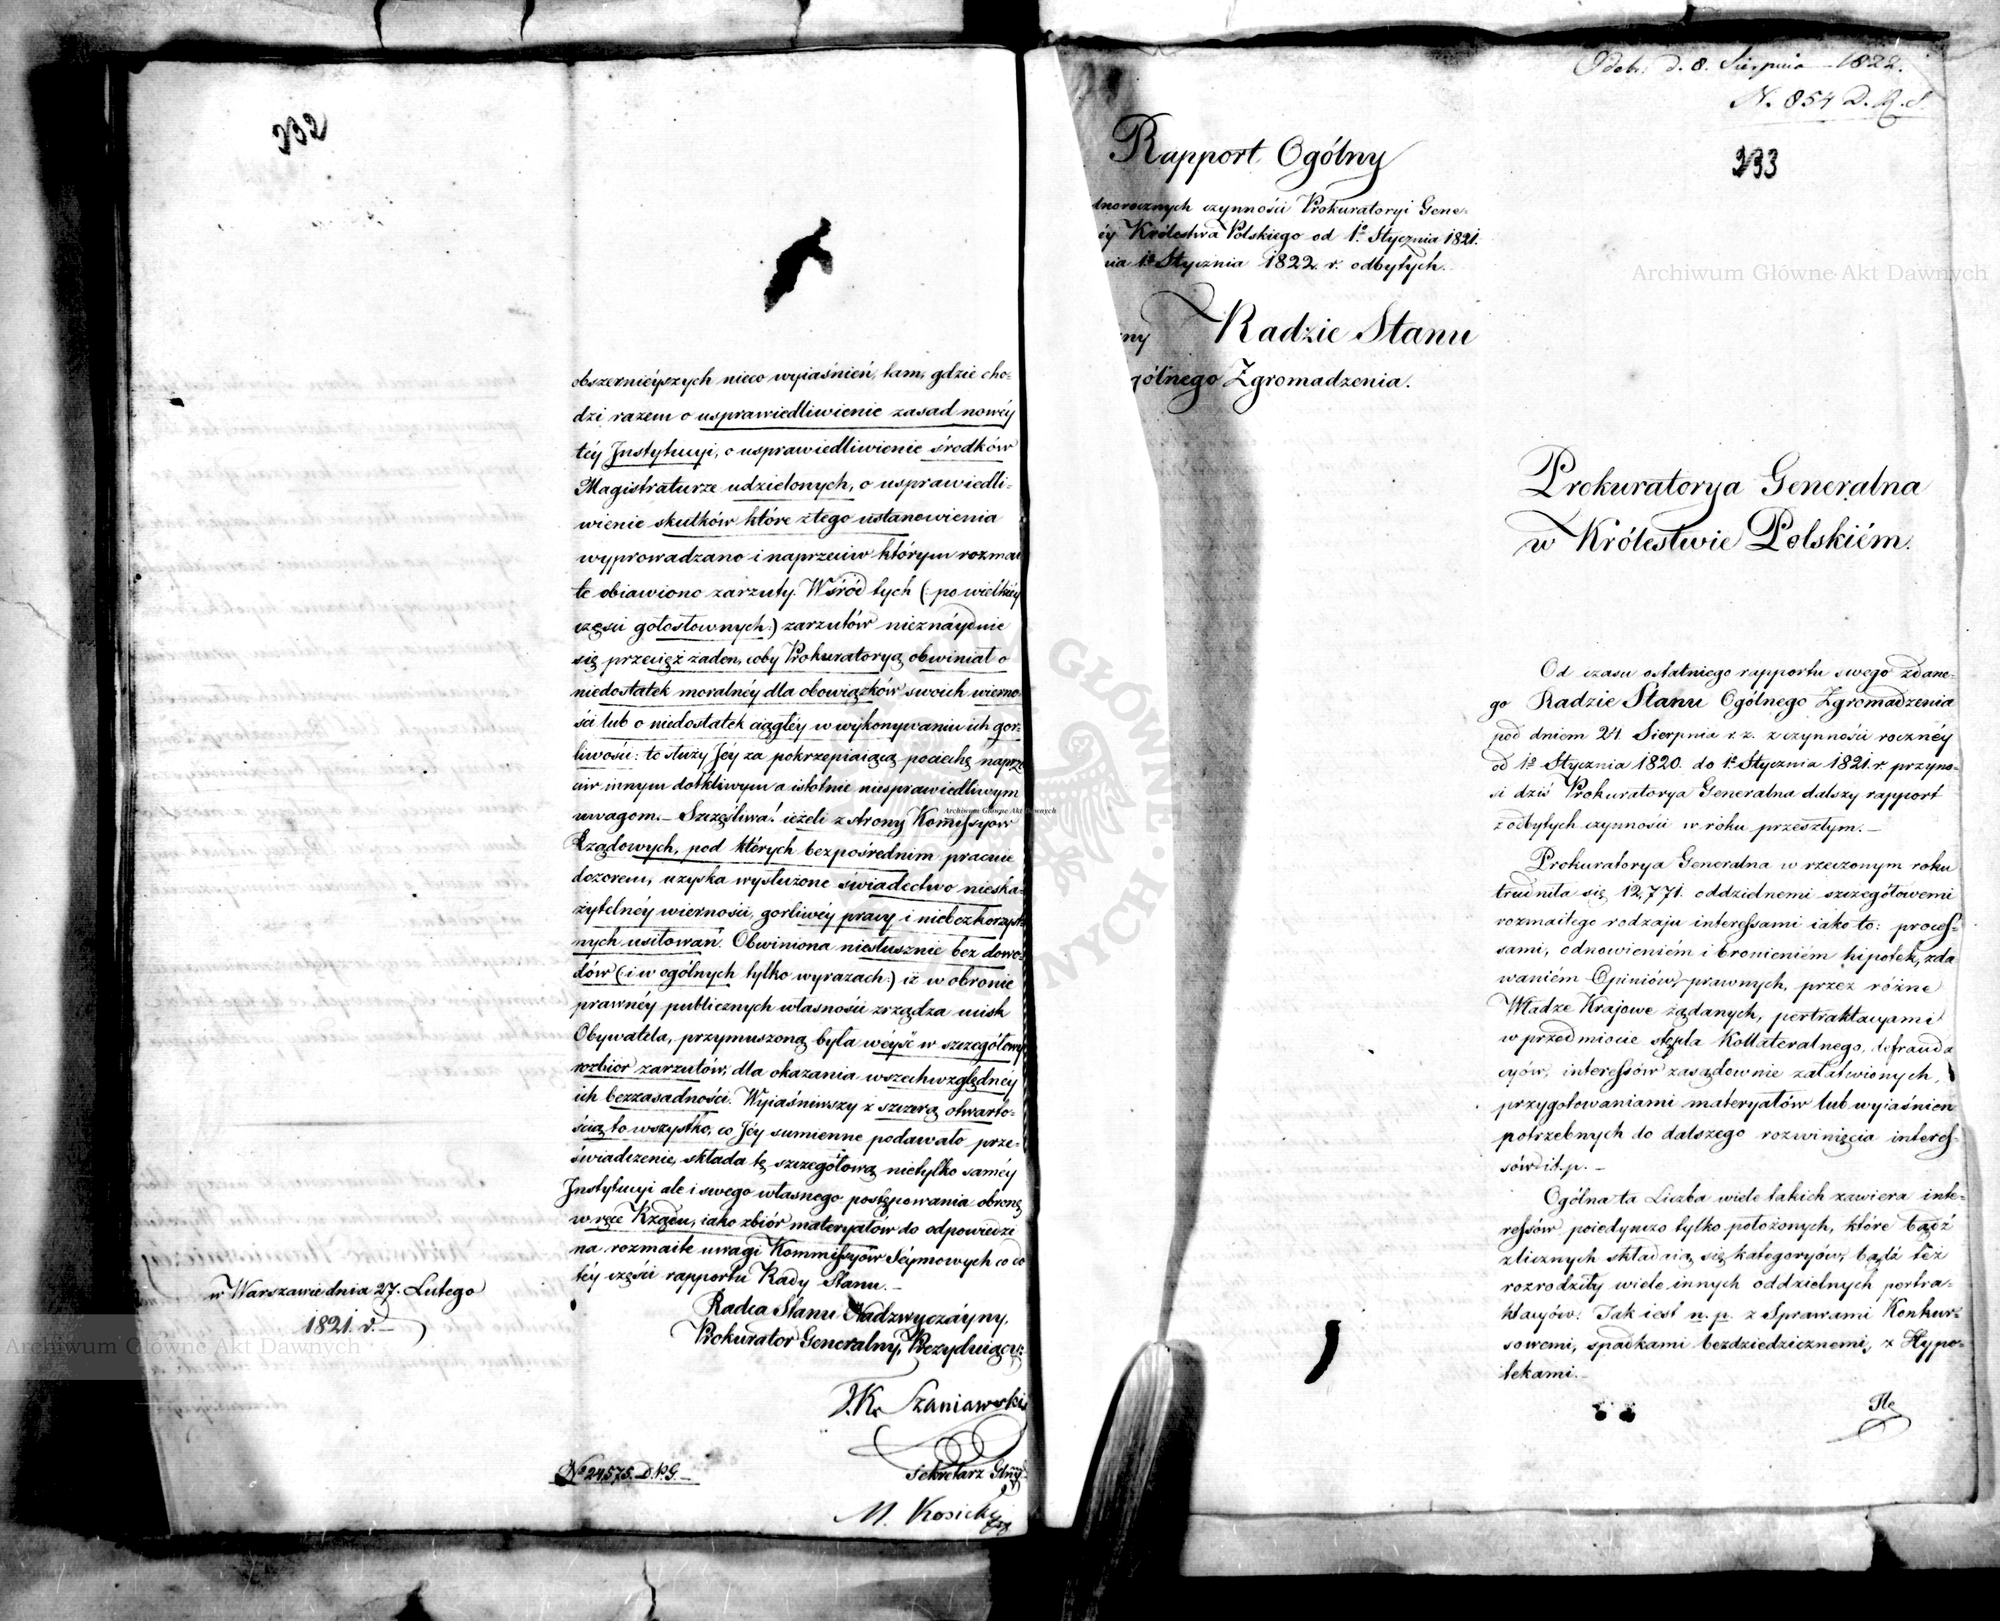 232
obszernieyszych nieco wyiaśnień, tam, gdzie cho-
dzi razem o usprawiedliwienie zasad nowéy
téy Instytucyi, o usprawiedliwienie środków
Magistraturze udzielonych, o usprawiedli-
wienie skutków które z tego ustanowienia
wyprowadzano i naprzeciw którym rozmai
te obiawiono zarzuty. Wśród tych (: po wielkiéy
części gołosłownych :) zarzutów nieznáydnie
się przecięż żaden, coby Prokuratoryą obwiniał o
niedostatek moralnéy dla obowiązków swoich wierno-
ści lub o niedostatek ciągłéy w wykonywaniu ich gor-
liwości: to służy Jéy za pokrzepiaiącą pociechę naprze
ciw innym dotkliwym a istotnie niesprawiedliwym
uwagom. – Szczęśliwa! ieżeli z strony Kommissyow
Rządowych, pod których bezpośrednim pracuie
dozorem, uzyska wysłużone świadectwo nieska-
zytelnéy wierności, gorliwéy pracy i niebezkorzyst-
nych usiłowań. Obwiniona niesłusznie bez dowo-
dów (: i w ogólnych tylko wyrazach :) iż w obronie
prawnéy publicznych własności zrządza ucisk
Obywatela, przymuszoną była weyść w szczegółowy
rozbior zarzutów, dla okazania wszechwzględnéy
ich bezzasadności. Wyiaśniwszy z szczerą otwarto-
ścią to wszystko, co Jéy sumienne podawało prze-
świadczenie, składa tę szczegółową nietylko saméy
Instytucyi ale i swego własnego postępowania obronę
w ręce Rządu, iako zbiór materyałów do odpowiedzi
na rozmaite uwagi Kommissyów Séymowych co do
téy części rapportu Rady Stanu. –
w Warszawie dnia 27. Lutego
1821. r. –
Radca Stanu Nadzwyczáyny,
Prokurator Generalny, Prezyduiący
J. K. Szaniawski
Sekretarz Glny
No 24,575. D.P.G. –
M. Kosicki
Odebr. d. 8. Sierpnia 1822.
N. 854 D. R. S.
233
Rapport Ogólny
dnorocznych czynności Prokuratoryi Gene-
éy Królestwa Polskiego od 1o Stycznia 1821.
nia 1o Stycznia 1822. r. odbytych.
ny Radzie Stanu
gólnego Zgromadzenia.
Prokuratorya Generalna
w Królestwie Polskiém.
Od czasu ostatniego rapportu swego zdane-
go Radzie Stanu Ogólnego Zgromadzenia
pod dniem 24. Sierpnia r. z. z czynności roczney
od 1o Stycznia 1820. do 1o Stycznia 1821. r. przyno-
si dziś Prokuratorya Generalna dalszy rapport
z odbytych czynności w roku przeszłym. –
Prokuratorya Generalna w rzeczonym roku
trudniła się 12,771. oddzielnemi szczegółowemi
rozmaitego rodzaju interessami iako to: proces-
sami, odnowieniém i bronieniém hipotek, zda
waniém Opiniów, prawnych, przez różne
Władze Krajowe żądanych, pertraktacyami
w przedmiocie stępla Kollateralnego, defrauda
cyów, interessów zasądownie załatwionych,
przygotowaniami materyałów lub wyiaśnien
potrzebnych do dalszego rozwinięcia interes-
sów i t. p. –
Ogólna ta Liczba wiele takich zawiera inte-
ressów poiedynczo tylko położonych, które bądź
z licznych składaią się kategoryów, bądź też
rozrodziły wiele innych oddzielnych pertra-
ktacyów: Tak iest n. p. z Sprawami Konkur-
sowemi, spadkami bezdziedzicznemi, z Hypo-
tekami. –
Archiwum Główne Akt Dawnych
Archiwum Główne Akt Dawnych
Archiwum Główne Akt Dawnych